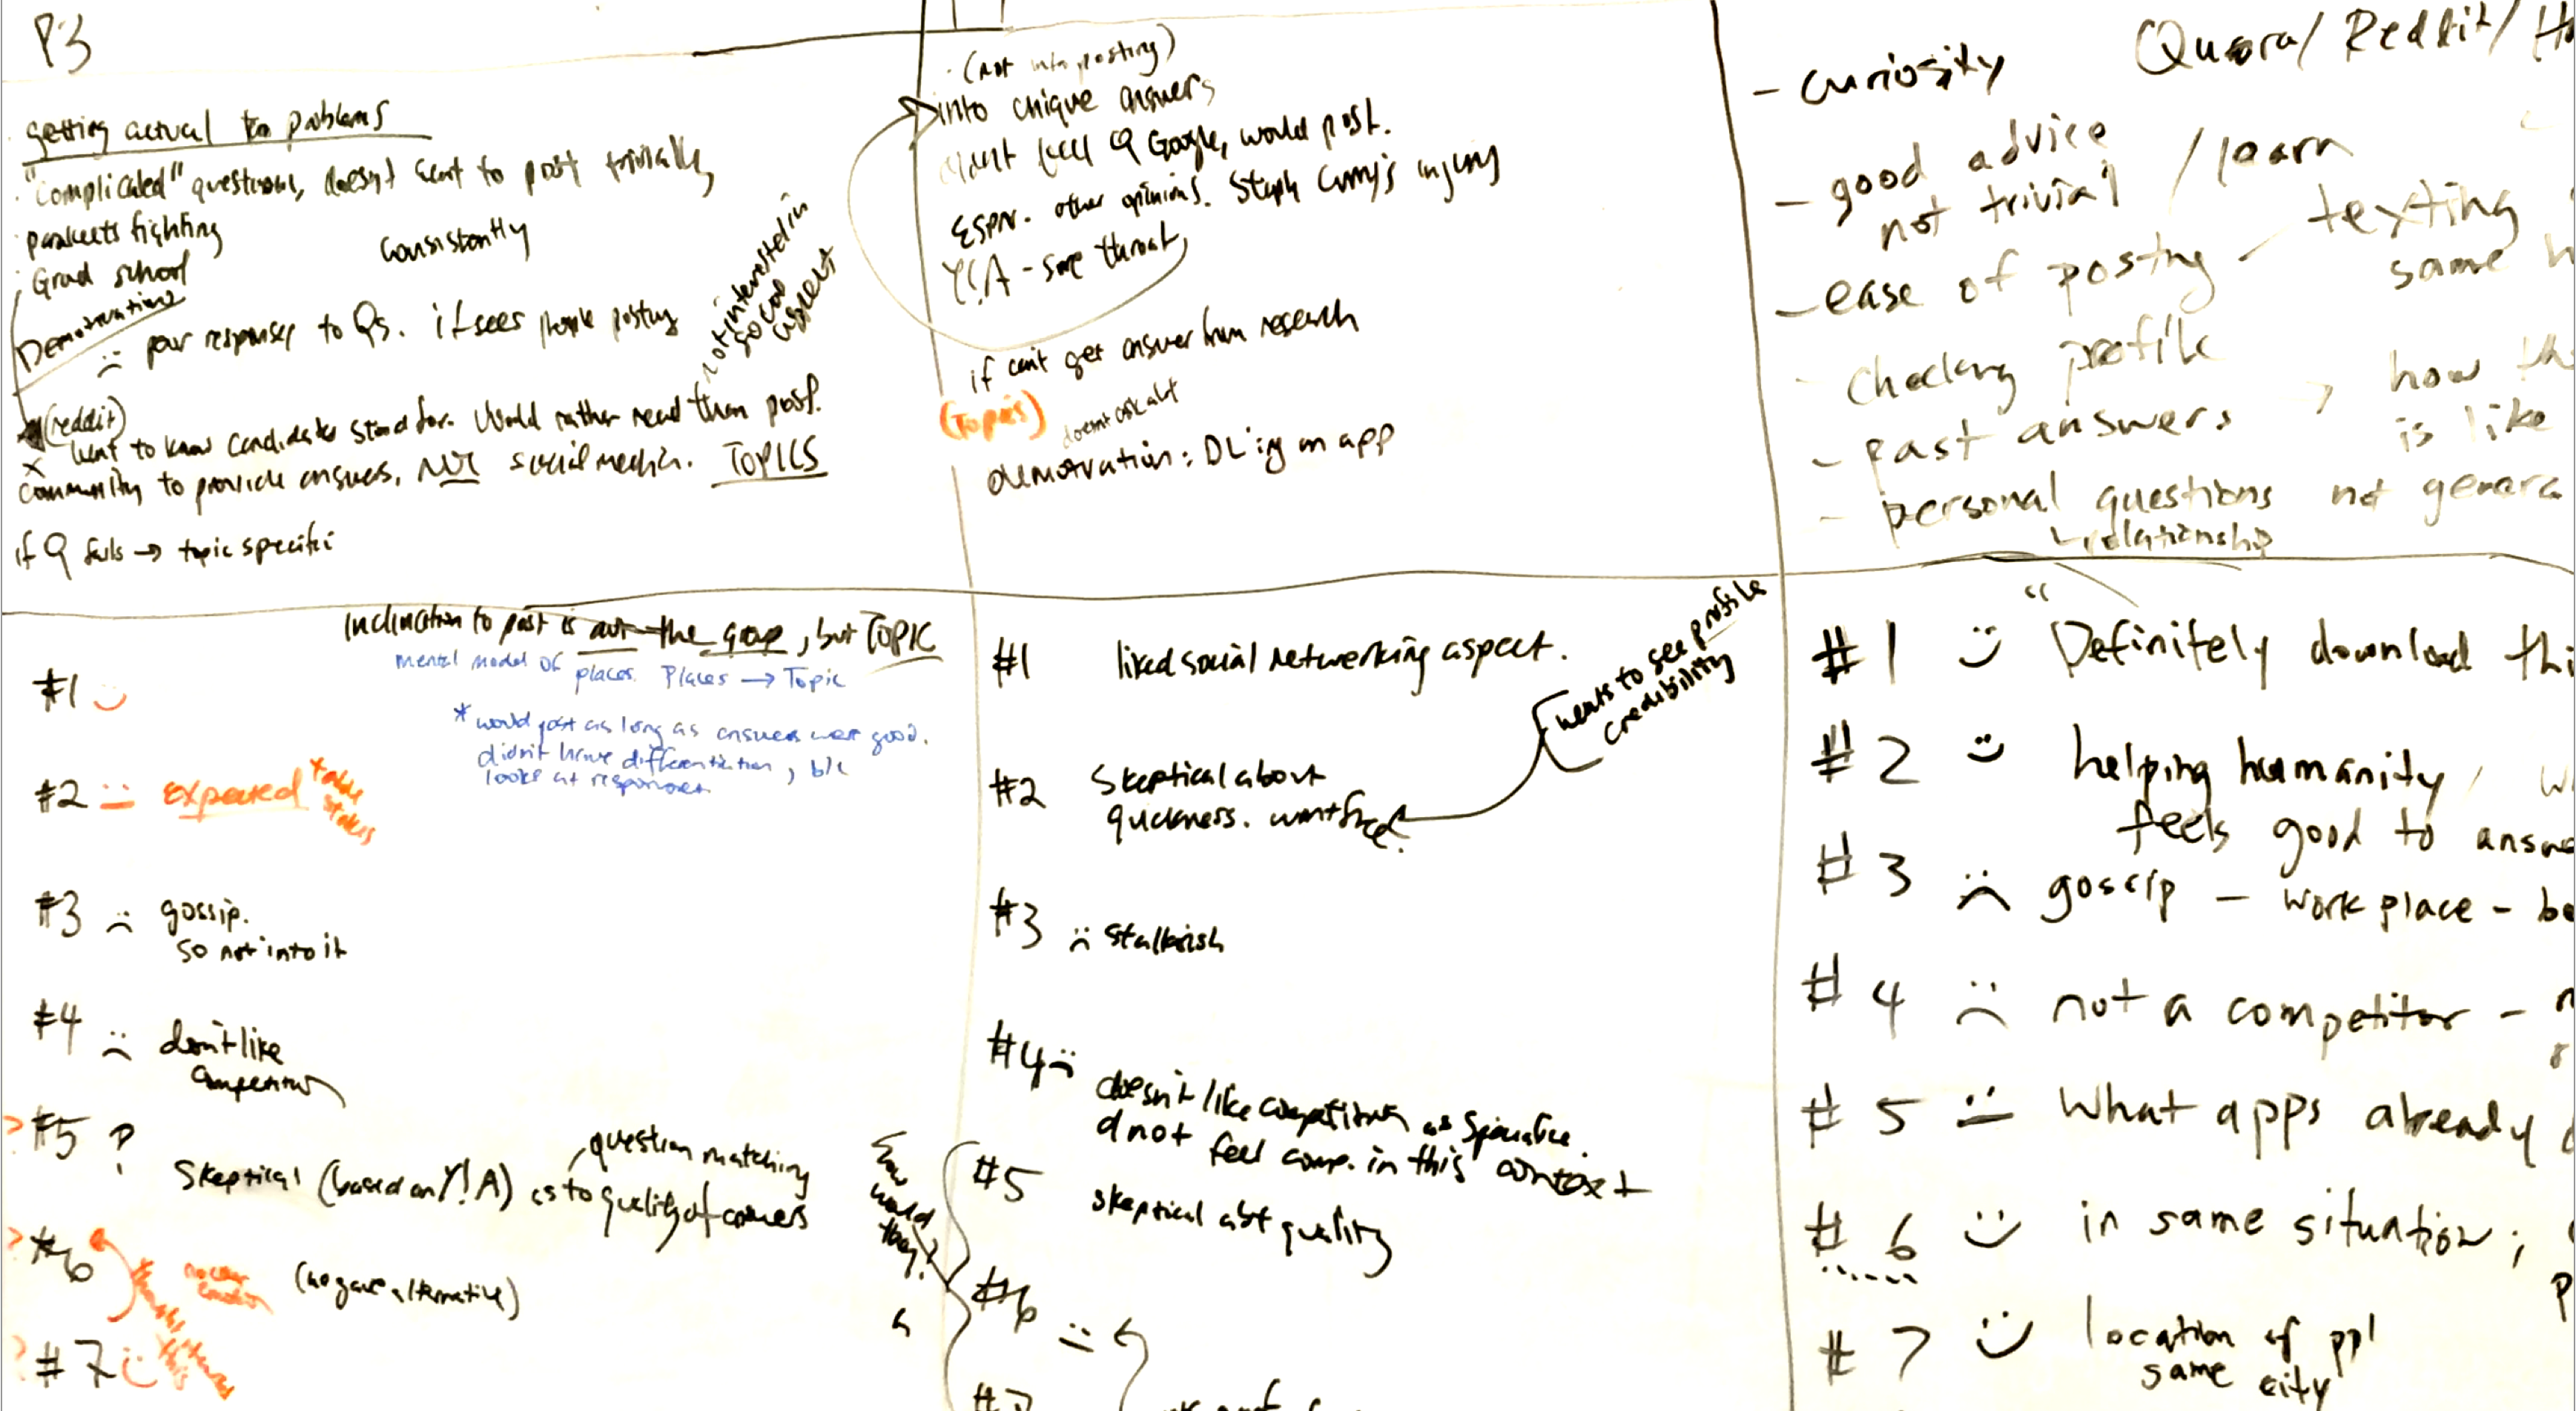 P3
getting actual to problems
"complicated" questions, doesn't want to post trivially,
parakeets fighting
consistently
Grad school
Demotivation?
poor responses to Qs. if sees people posting
not interested in
social
aspect
(reddit)
want to know candidates stand for. Would rather read than post.
community to provide answers, NOT social media. TOPICS
if Q fails → topic specific
(not into posting)
into unique answers
Google, would post.
ESPN. other opinions. Steph Curry's injury
Y!A - sore throat
if can't get answer from research
(Topics) doesn't ask abt
demotivation: DL'ing an app
Quora/ Reddit/
- curiosity
- good advice / learn
not trivial
- ease of postng - texting
same
- Checking profile
how th
- past answers
is like
- personal questions not genera
relationship
Inclination to post is not the group, but TOPIC
mental model of
places. Places → Topic
* would post as long as answers were good.
didn't have differentiation, b/c
looks at responses.
#1 :)
#2 :| expected table
stakes
#3 :( gossip.
so not into it
#4 :( don't like
competition
? #5 ?
question matching
Skeptical (based on Y!A) as to quality of answers
? #6
no clear
emotion
(no gave alternative)
? #7 :)
#1 liked social networking aspect.
wants to see profile
credibility
#2 Skeptical about
quickness. want free?
#3 :( stalkerish
#4 :(
doesn't like competition as
d not feel comp. in this context
how
would
they?
#5
skeptical abt quality
#6 :|
#7
#1 :) "Definitely download thi
#2 :) helping humanity /
feels good to answe
#3 :( gossip - work place - be
#4 :( not a competitor -
#5 :| What apps already
#6 :) in same situation;
#7 :) location of ppl
same city